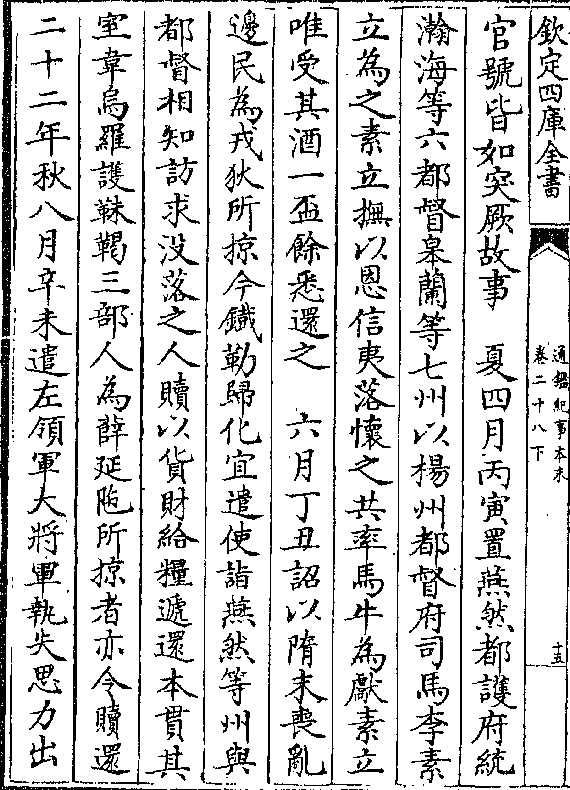 欽定四庫全書
通鑑紀事本末
卷二十八下
十五
官號皆如突厥故事　夏四月丙寅置燕然都護府統
瀚海等六都督皋蘭等七州以揚州都督府司馬李素
立為之素立撫以恩信夷落懷之共率馬牛為獻素立
唯受其酒一盃餘悉還之　六月丁丑詔以隋末喪亂
邊民為戎狄所掠今鐵勒歸化宜遣使詣燕然等州與
都督相知訪求没落之人贖以貨財給糧遞還本貫其
室韋烏羅護靺鞨三部人為薛延陁所掠者亦令贖還
二十二年秋八月辛未遣左領軍大將軍執失思力出